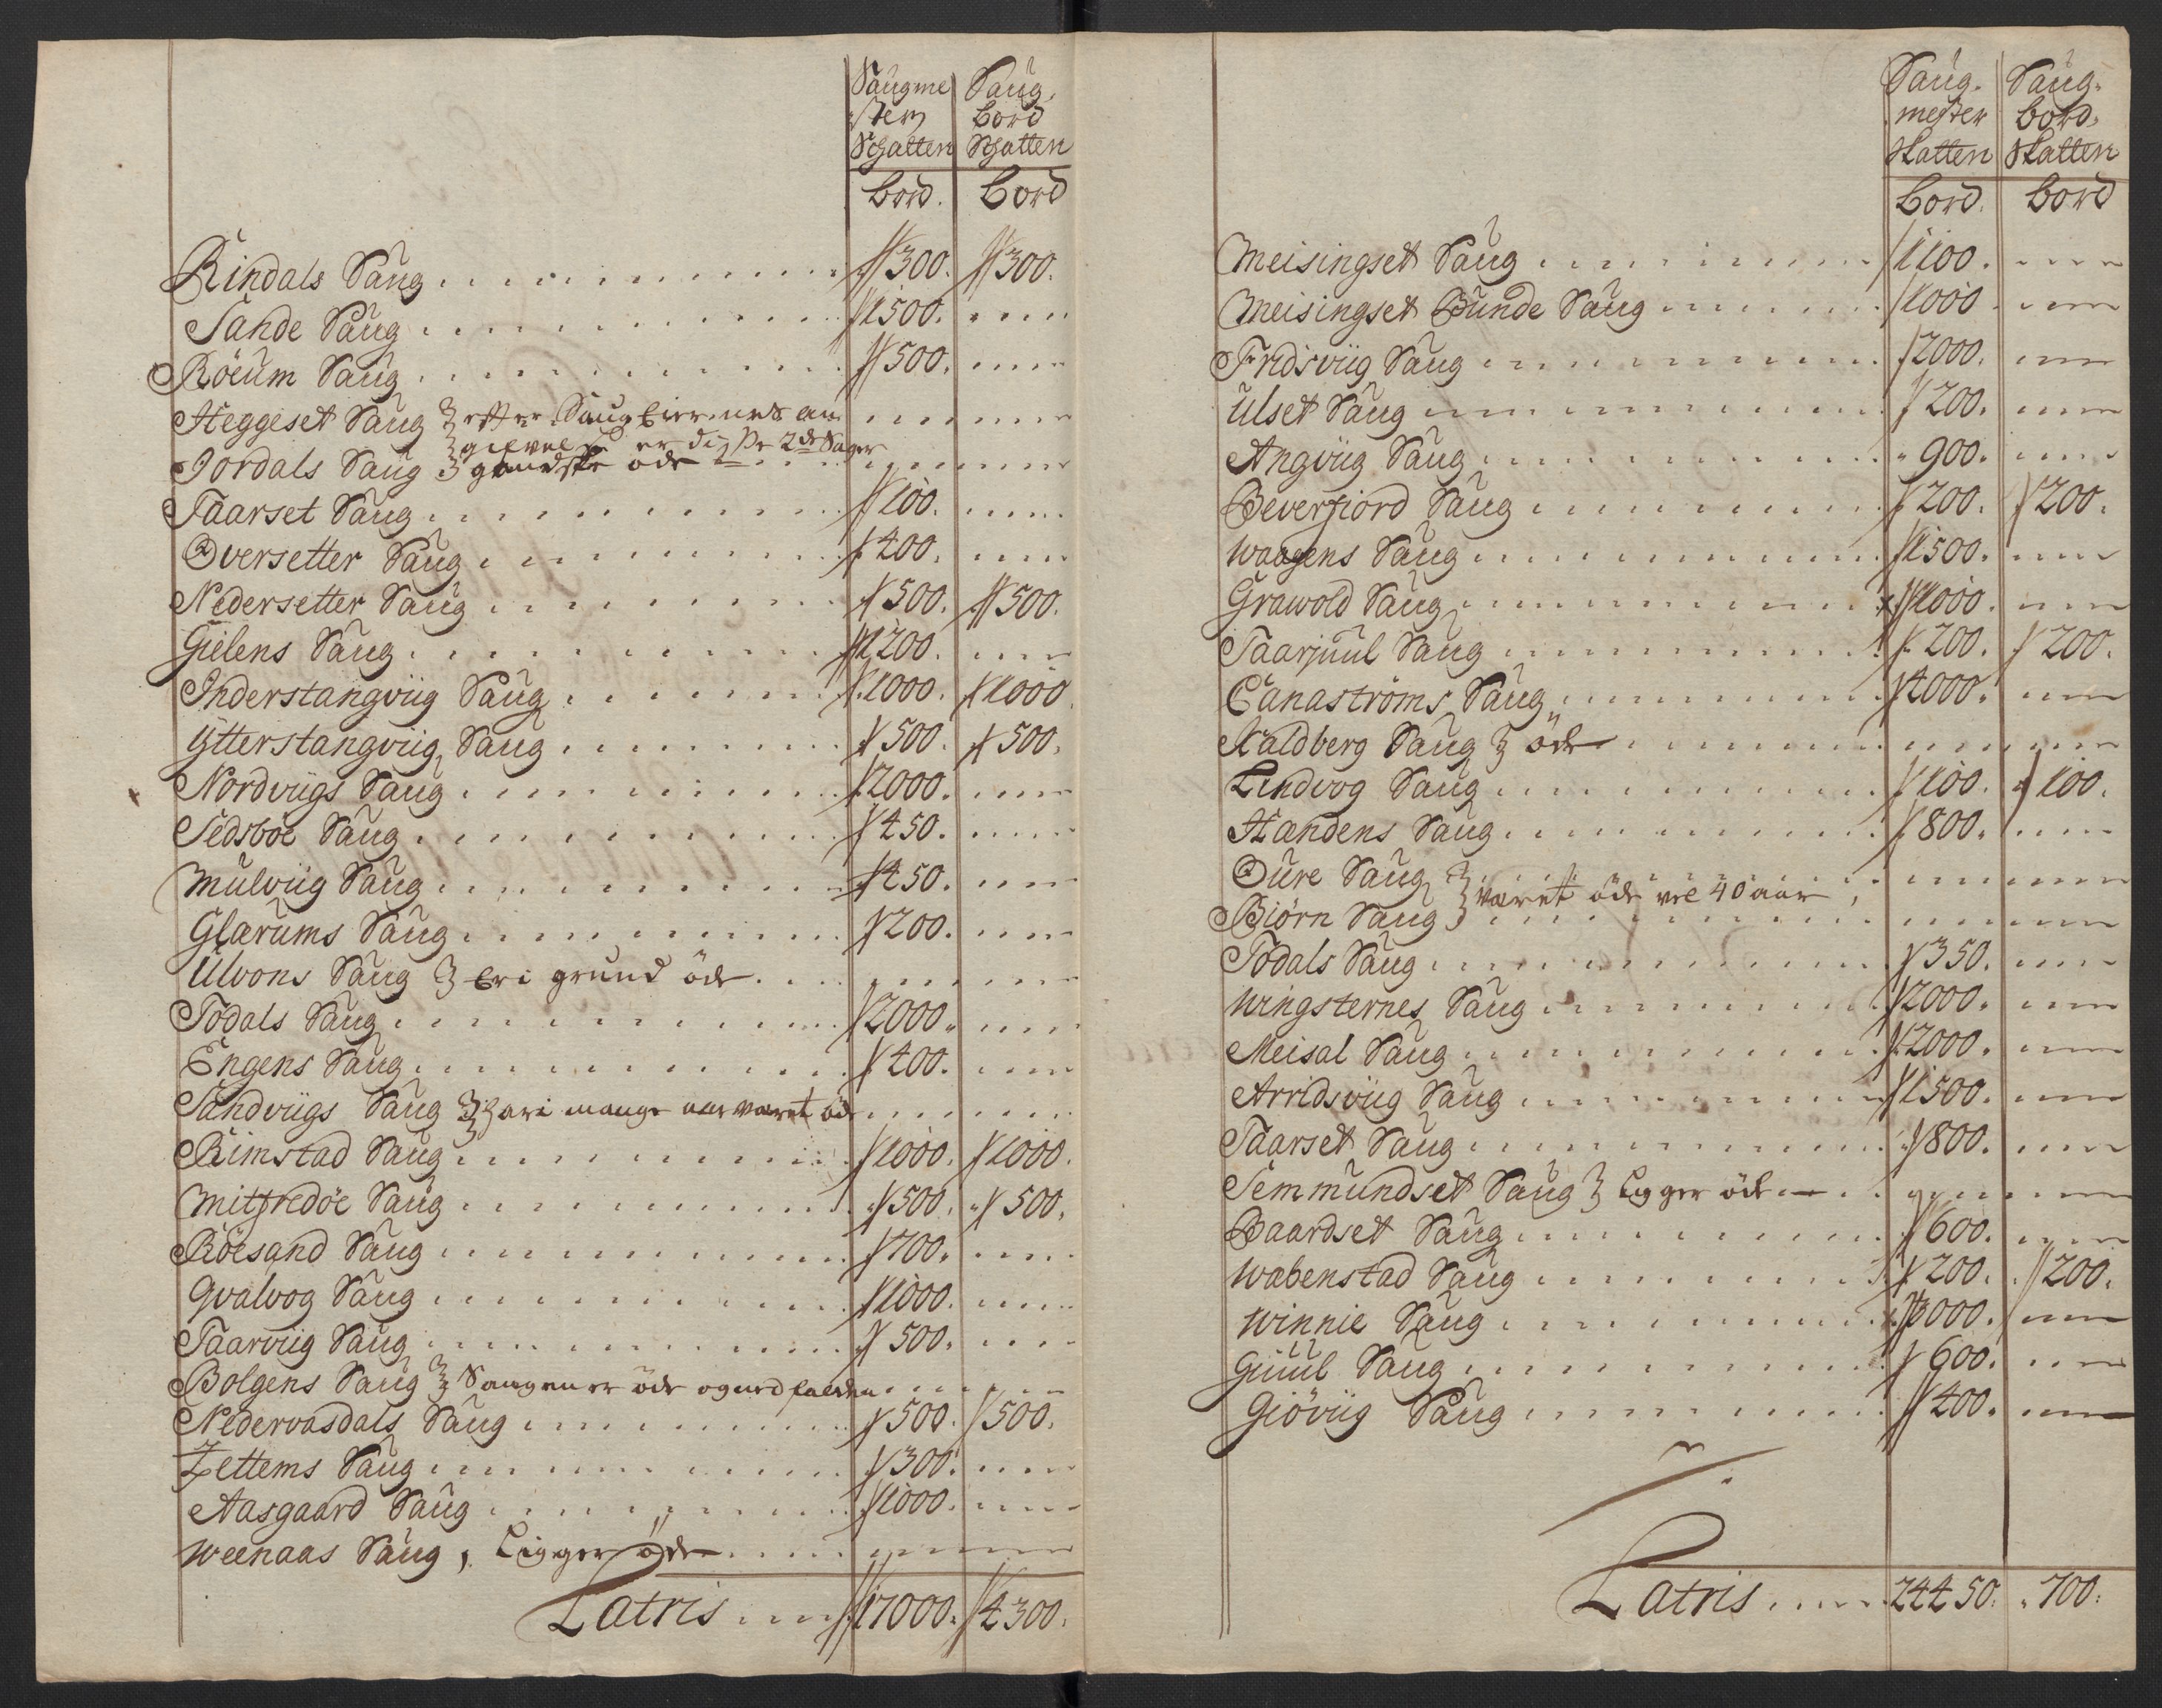 Saugme Saug
stern bord
Schatten Schatten
bord. bord
Rindals Saug 300. 300.
Sande Saug 1500.
Röeum Saug 500.
Heggeset Saug } efter Saug Eiernes an
givelse er disse 2de Sauger
Jordals Saug } gandske öde
Taarset Saug 100.
Oversetter Saug 400.
Nedersetter Saug 500. 500.
Gielens Saug 1200.
Inderstangviig Saug 1000. 1000
Ytterstangviig Saug 500. 500.
Nordviigs Saug 2000.
Sedsböe Saug 450.
Mulviig Saug 450.
Glærums Saug 200.
Ulvons Saug } Er i grund öde
Todals Saug 2000.
Engens Saug 400.
Sandviigs Saug } har i mange aar været öde
Rimstad Saug 1000. 1000.
Mitfredöe Saug 500. 500.
Röesand Saug 700.
Qvalvog Saug 1000.
Taarviig Saug 500.
Bolgens Saug } Saugen er öde og nedfalden
Nedervasdals Saug 500. 500.
Zettems Saug 300.
Aasgaard Saug 1000.
Weenaas Saug, Ligger öde
Latris 17000. 4300.
Saug- Saug-
mester bord-
skatten Skatten
bord. bord
Meisingset Saug 1100.
Meisingset Bunde Saug 1000
Fridsviig Saug 2000.
Ulset Saug 200.
Angviig Saug 900.
Beverfiord Saug 200. 200.
Waagens Saug 1500.
Grawold Saug 1000.
Taarjuul Saug 200. 200.
Canaströms Saug 4000.
Kaldberg Saug } öde
Lendvog Saug 100. 100.
Handens Saug 800.
Oure Saug }
været öde vel 40 aar,
Biörn Saug }
Todals Saug 350.
Wingsternes Saug 2000.
Meisal Saug 2000.
Arridsviig Saug 1500.
Taarset Saug 800.
Semmundset Saug } Ligger öde
Baardset Saug 600.
Wabenstad Saug 200. 200.
Winnie Saug 3000.
Giuul Saug 600.
Giöviig Saug 400.
Latris 24450. 700.